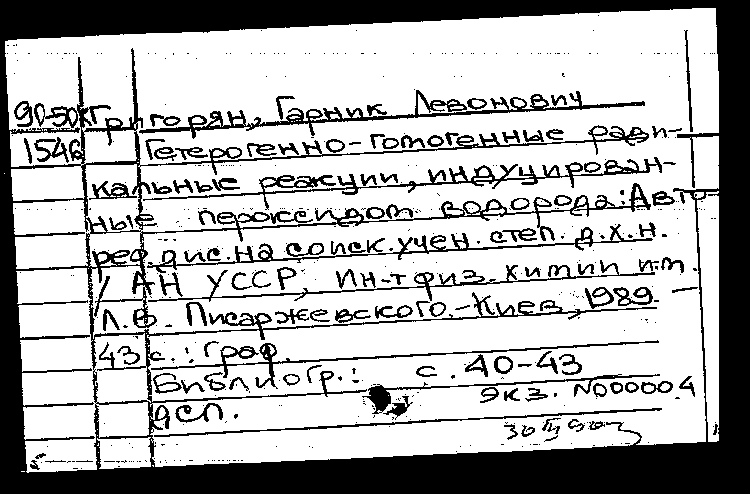 90-50к Григорян, Гарник Левонович
1546 Гетерогенно-гомогенные ради-
кальные реакции, индуцирован-
ные пероксидом водорода: Авто-
реф. дис. на соиск. учен. степ. д.х.н.
/ АН УССР, Ин-т физ. химии им.
Л.В. Писаржевского. - Киев, 1989. -
43 с. : граф.
Библиогр.: с. 40-43
дсп. экз. N000004